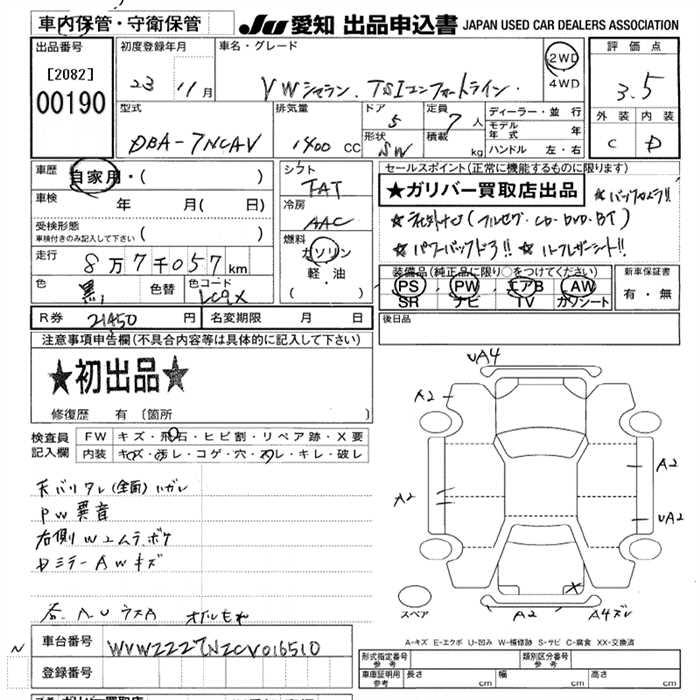 車内保管・守衛保管
JU 愛知 出品申込書 JAPAN USED CAR DEALERS ASSOCIATION
出品番号
[2082]
00190
初度登録年月
23 11月
車名・グレード
VWシャラン TSIコンフォートライン
2WD
4WD
評価点
3.5
外装 内装
C D
型式
DBA-7NCAV
排気量
1400 CC
ドア
5
形状
SW
定員
7人
積載 kg
ディーラー・並行
モデル年式 年
ハンドル 左・右
車歴
自家用・( )
車検 年 月( 日)
受検形態
車検付きのみ記入して下さい ( )
走行
8万7千057km
色
黒
色替
色コード
LC9X
シフト
FAT
冷房
AAC
燃料
ガソリン
軽・油
( )
セールスポイント(正常に機能するものに限ります)
★ガリバー買取店出品
☆バックカメラ!!
☆社外ナビ(フルセグ・CD・DVD・BT)
☆パワーバックドア!! ☆ハーフレザーシート!!
装備品(純正品に限り○をつけてください)
PS PW エアB AW
SR ナビ TV カワシート
新車保証書
有・無
R券 21450 円
名変期限 月 日
後日品
注意事項申告欄(不具合内容等は具体的に記入して下さい)
★初出品★
修復歴 有 〔箇所 〕
検査員記入欄
FW キズ・飛石・ヒビ割・リペア跡・X要
内装 キズ・汚レ・コゲ・穴・スレ・キレ・破レ
天バリタレ(全面)ハガレ
PW異音
右側Wエムラボケ
Dミラー AWキズ
各 A.U ウスA
N
車台番号
WVWZZZ7NZCV016510
登録番号
UA4
A2
A2
A2
UA2
A2
A4ズレ
X
スペア
A-キズ E-エクボ U-凹み W-補修跡 S-サビ C-腐食 XX-交換済
形式指定番号 参考
類別区分番号 参考
車庫証明用 参考
長さ cm
幅 cm
高さ cm